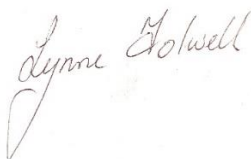 Lynne Folwell